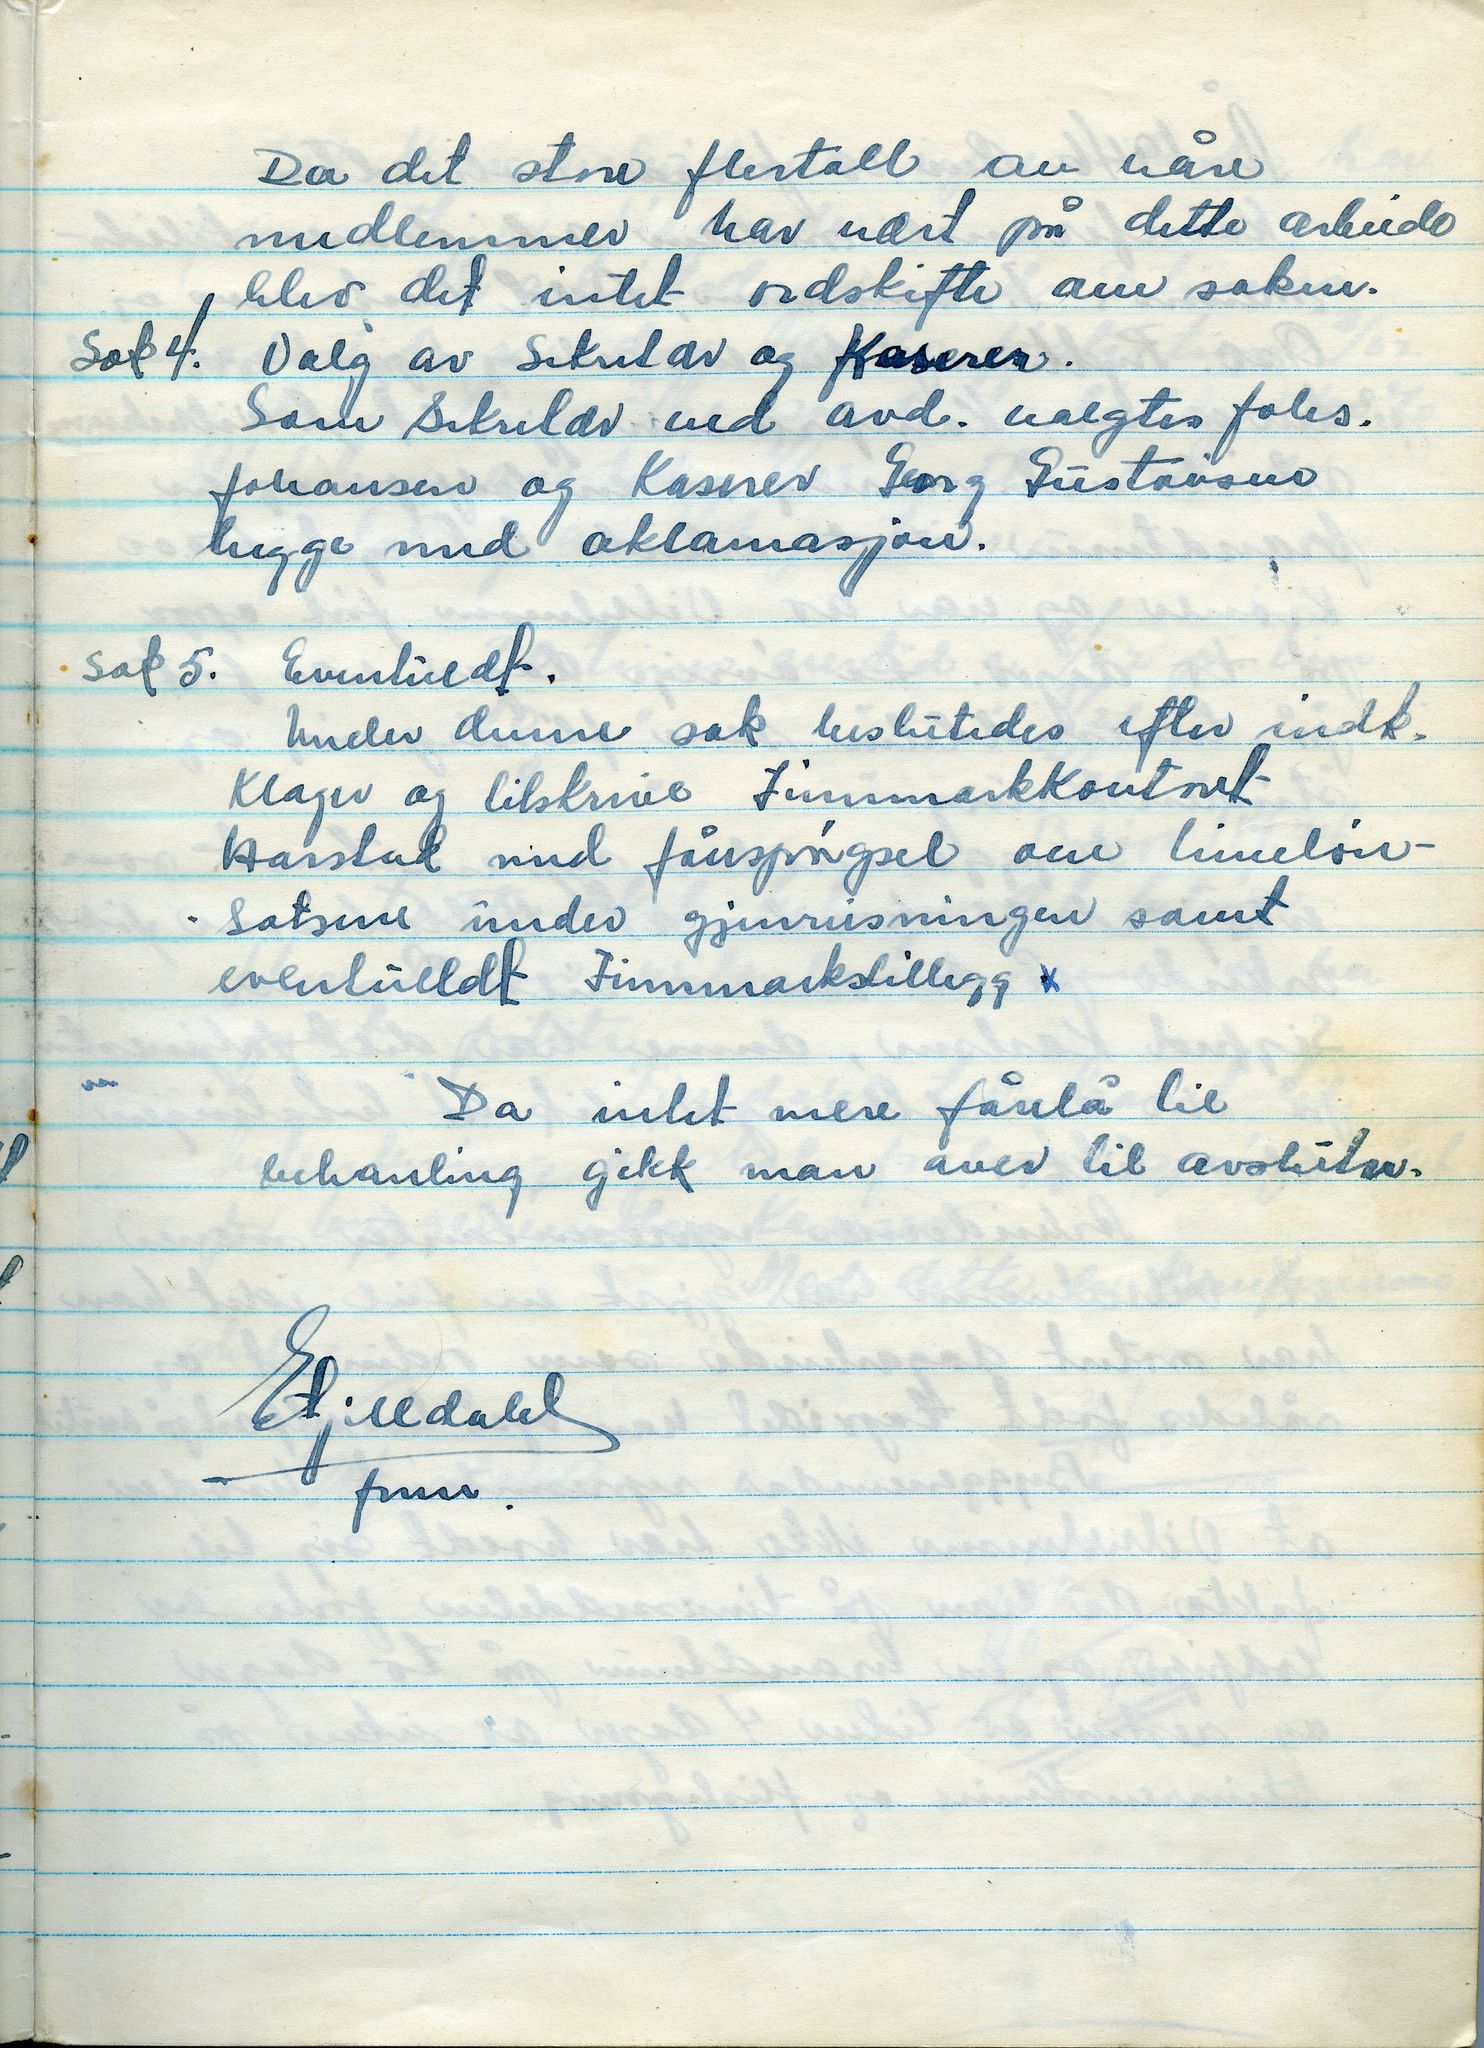 Da det store flertall av våre
medlemmer har vært på dette arbeide
blev det intet ordskifte om saken.
Sak 4. Valg av Sekretær og Kaserer.
Som Sekretær ved avd. valgtes Johs.
Johansen og Kaserer Georg Gustavsen
begge med aklamasjon.
Sak 5. Eventueldt.
Under denne sak beslutedes efter indk.
Klager og tilskrive Finnmarkkontoret
Harstad med fårspørgsel om timeløn-
satsene under gjenreisningen samt
eventuelldt Finnmarkstillegg x
Da intet mere fårelå til
behanling gikk man over til avsluten.
form.